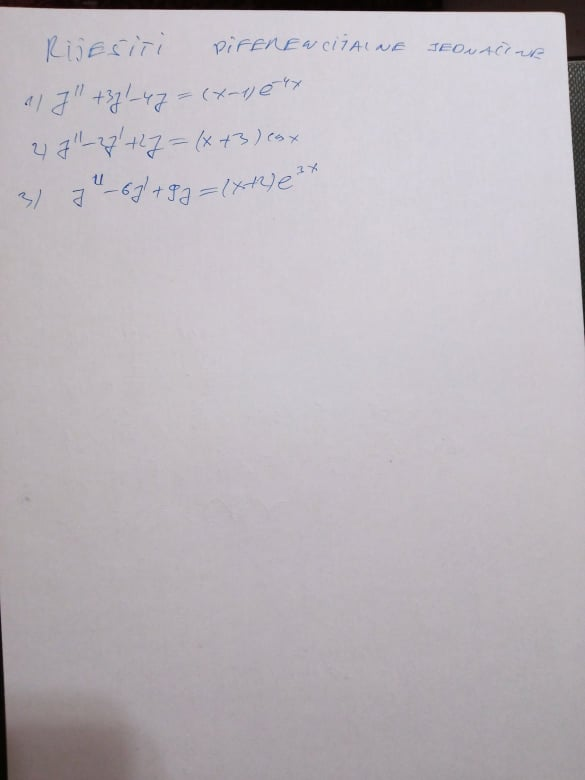 RIJEŠITI DIFERENCIJALNE JEDNAČINE
1) y'' + 3y' - 4y = (x-1)e^{-4x}
2) y'' - 2y' + 2y = (x+3) cos x
3) y'' - 6y' + 9y = (x+2)e^{3x}